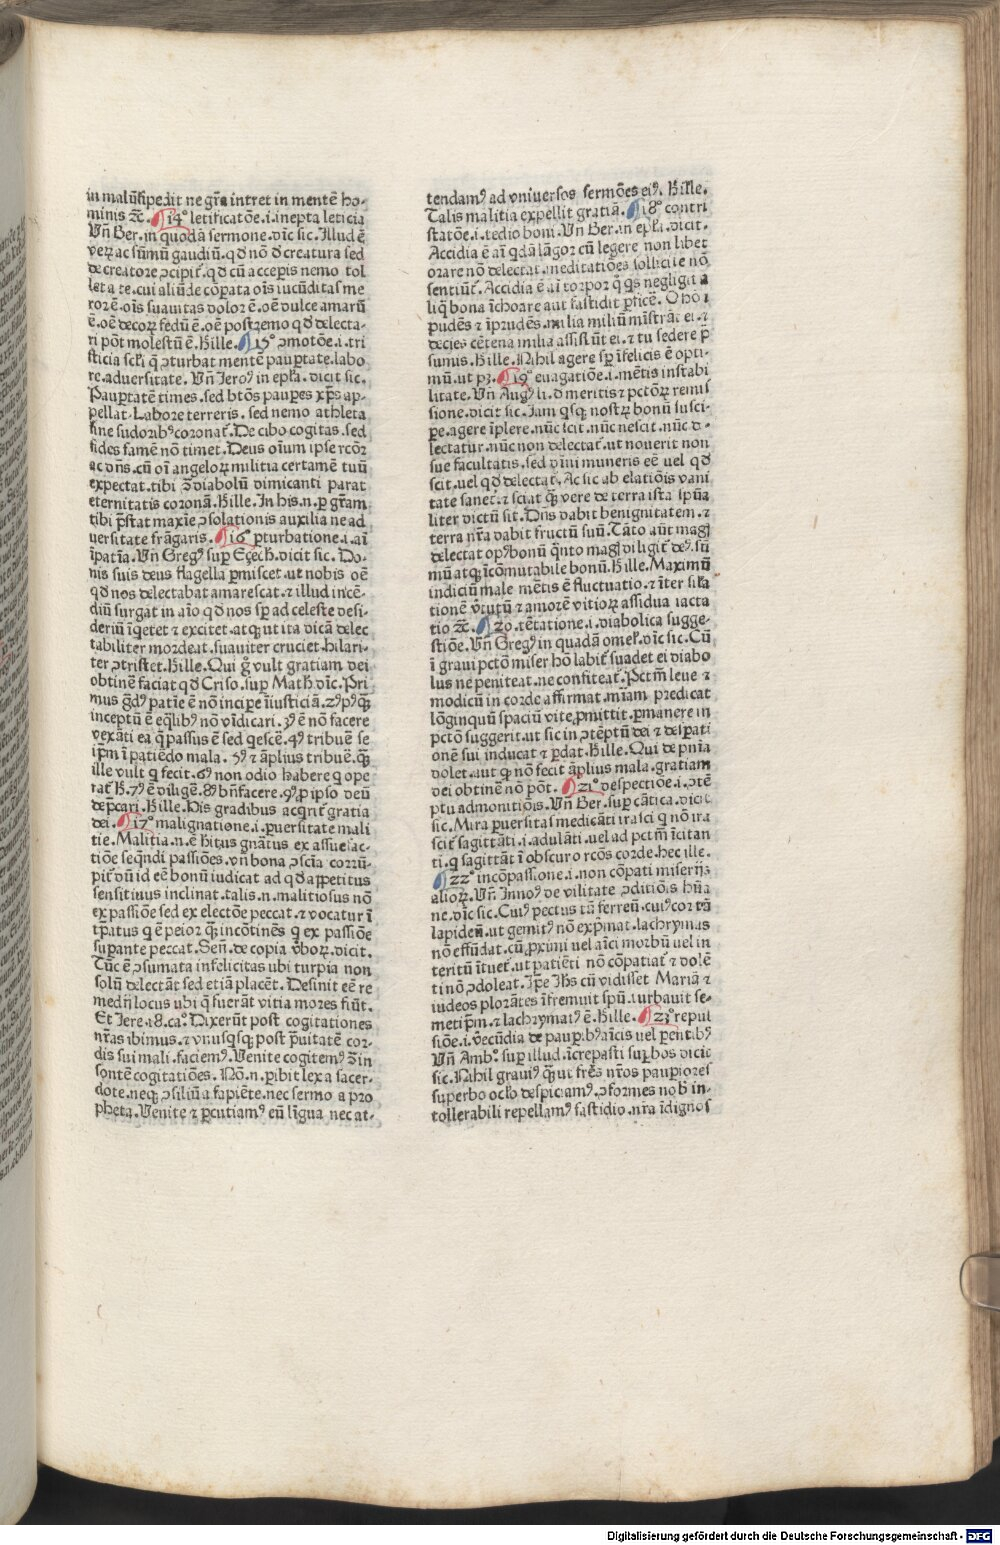 in malū. īpedit ne gr̄a intret in mentē ho-
minis ⁊c̄. ¶ 14° letificatōe .i. inepta leticia
Vn̄ Ber. in quodā sermone. dīc sic. Illud ē
veꝝ ac sūmū gaudiū. qd̄ nō d̄ creatura sed
de creatore ꝯcipit᷑. qd̄ cū acceꝑis nemo tol
let a te. cui aliūde cōꝑata oīs iucūditas me
ror ē. oīs suauitas dolor ē. oē dulce amarū
ē. oē decoꝝ fedū ē. oē postremo qd̄ delecta-
ri pōt molestū ē. Hille. ¶ 15° ꝯmotōe .i. tri
sticia scl̄i q̄ ꝯturbat mentē pauꝑtate. labo
re. aduersitate. Vn̄ Jeroꝰ in epl̄a. dicit sic.
Pauꝑtatē times. sed btōs pauꝑes xp̄s ap-
pellat. Labore terreris. sed nemo athleta
sine sudoribꝰ coronat᷑. De cibo cogitas. sed
fides famē nō timet. Deus oīum ipse rcōr
ac dn̄s. cū oī angeloꝝ militia certamē tuū
expectat. tibi ꝯ̄ diabolū dimicanti parat
eternitatis coronā. Hille. In his .n. ꝑ gr̄am
tibi p̄stat maxīe ꝯsolationis auxilia ne ad
uersitate frāgaris. ¶ 16° ꝑturbatione .i. aī
īpatīa. Vn̄ Gregꝰ suꝑ Eȥech. dicit sic. Do-
nis suis deus flagella ꝑmiscet. ut nobis oē
qd̄ nos delectabat amarescat. ⁊ illud incē-
diū surgat in aīo qd̄ nos sꝑ ad celeste desi-
deriū īq̄etet ⁊ excitet. atqꝫ ut ita dicā delec
tabiliter mordeat. suauiter cruciet. hilari-
ter ꝯtristet. Hille. Qui g̊ vult gratiam dei
obtinē faciat qd̄ Criso. suꝑ Math. dīc. Pri
mus g̊dꝰ patīe ē nō incipe īiusticiā. 2ꝰ pꝰ qꝫ
inceptū ē eq̄libꝰ nō vīdicari. 3ꝰ ē nō facere
vexāti ea q̄ passus ē sed qescē. 4ꝰ tribuē se
ip̄m ī patiēdo mala. 5ꝰ ⁊ āplius tribuē. qꝫ
ille vult q̄ fecit. 6ꝰ non odio habere q̄ ope
rat᷑ h. 7ꝰ ē diligē. 8ꝰ bn̄facere. 9ꝰ ꝓ ipso deū
dep̄cari. Hille. His gradibus acq̄rit᷑ gratia
dei. ¶ 17° malignatione .i. ꝑuersitate mali
tie. Malitia .n. ē hitus gnātus ex assuefac-
tiōe seq̄ndi passiōes. vn̄ bona ꝯscīa corrū-
pit᷑ dū id eē bonū iudicat ad qd̄ appetitus
sensitiuus inclinat. talis .n. malitiosus nō
ex passiōe sed ex electōe peccat. ⁊ vocatur ī
tꝑatus q̄ ē peior qꝫ incōtinēs q̄ ex passiōe
suꝑante peccat. Sen̄. de copia v̄boꝝ. dicit.
Tūc ē ꝯsumata infelicitas ubi turpia non
solū delectāt sed etiā placēt. Desinit eē re
medij locus ubi q̄ fuerāt vitia mores fiūt.
Et Jere. 18. ca°. Dixerūt post cogitationes
nr̄as ibimus. ⁊ vnusqsqꝫ post p̄uitatē cor-
dis sui mali. faciemꝰ. Venite cogitemꝰ ꝯ̄ in
sontē cogitatiōes. Nō .n. ꝑibit lex a sacer-
dote. neqꝫ ꝯsiliū a sapiēte. nec sermo a pro
pheta. Venite ⁊ ꝑcutiamꝰ eū līgua nec at-
tendamꝰ ad vniuersos sermōes eiꝰ. Hille.
Talis malitia expellit gratiā. ¶ 18° contri
statōe .i. tedio boni. Vn̄ Ber. in epl̄a. dicit.
Accidia ē aī qdā lāgor cū legere non libet
orare nō delectat. meditatiōes sollicite nō
sentiūt᷑. Accidia ē aī torpor q̄ qs negligit a
liq̄ bona īchoare aut fastidit ꝑficē. O hō ī
pudēs ⁊ īprudēs. milia miliū mīstrāt ei. ⁊
decies cētena milia assistūt ei. ⁊ tu sedere p̄
sumis. Hille. Nihil agere sꝑ īfelicis ē opti-
mū. ut pꝫ. ¶ 19° euagatiōe .i. mētis instabi
litate. Vn̄ Augꝰ li. d̄ meritis ⁊ pctōꝝ remis
sione. dicit sic. Jam qsqꝫ nostꝝ bonū susci-
ꝑe. agere īplere. nūc scit. nūc nescit. nūc d̄-
lectatur. nūc non delectat᷑. ut nouerit non
sue facultatis. sed dīni muneris eē uel qd̄
scit. uel qd̄ delectat᷑. Ac sic ab elatiōis vani
tate sanet᷑. ⁊ sciat qꝫ vere de terra ista spūa
liter dictū sit. Dn̄s dabit benignitatem. ⁊
terra nr̄a dabit fructū suū. Tāto aūt magꝭ
delectat opꝰ bonū q̄nto magꝭ diligit᷑ deꝰ. sū
mū atqꝫ īcōmutabile bonū. Hille. Maximū
indiciū male mētis ē fluctuatio. ⁊ īter sila
tionē v̄tutū ⁊ amorē vitioꝝ assidua iacta
tio ⁊c̄. ¶ 20. tētatione .i. diabolica sugge-
stiōe. Vn̄ Gregꝰ in quadā omel̄. dīc sic. Cū
ī graui pctō miser hō labit᷑ suadet ei diabo
lus ne peniteat. ne confiteat᷑. Pctm̄ leue ⁊
modicū in corde affirmat. m̄iam predicat
lōginquū spaciū vite ꝓmittit. ꝑmanere in
pctō suggerit. ut sic in ꝯtēptū dei ⁊ despati
onē sui inducat ⁊ ꝑdat. Hille. Qui de pn̄ia
dolet. aut qꝫ nō fecit āplius mala. gratiam
dei obtinē nō pōt. ¶ 21° despectiōe .i. ꝯtē
ptu admonitiōis. Vn̄ Ber. suꝑ cātica. dicit
sic. Mira ꝑuersitas medicāti irasci q nō ira
scit᷑ sagittāti .i. adulāti. uel ad pctm̄ īcitan
ti. q sagittāt ī obscuro rcōs corde. hec ille.
¶ 22° incōpassione .i. non cōpati miserijs
alioꝝ. Vn̄ Innoꝰ de vilitate ꝯditiōis hūa
ne. dīc sic. Cuiꝰ pectus tā ferreū. cuiꝰ cor tā
lapideū. ut gemitꝰ nō exp̄mat. lachrymas
nō effūdat. cū ꝓximi uel aīci morbū uel in
teritū ītuet᷑. ut patiēti nō cōpatiat᷑ ⁊ dolē
ti nō ꝯdoleat. Ip̄e Jhs cū vidisset Mariā ⁊
iudeos plorātes īfremuit spū. turbauit se-
metip̄m. ⁊ lachrymatꝰ ē. Hille. ¶ 23° repul
siōe .i. v̄ecūdia de pauꝑibꝰ aīcis uel pentibꝰ
Vn̄ Amb°. suꝑ illud. īcrepasti suꝑbos dicit
sic. Nihil grauiꝰ qꝫ ut fr̄es nr̄os pauꝑiores
superbo oclo despiciamꝰ. ꝯformes nob̄ in-
tollerabili repellamꝰ fastidio. nr̄a īdignos
Digitalisierung gefördert durch die Deutsche Forschungsgemeinschaft - DFG